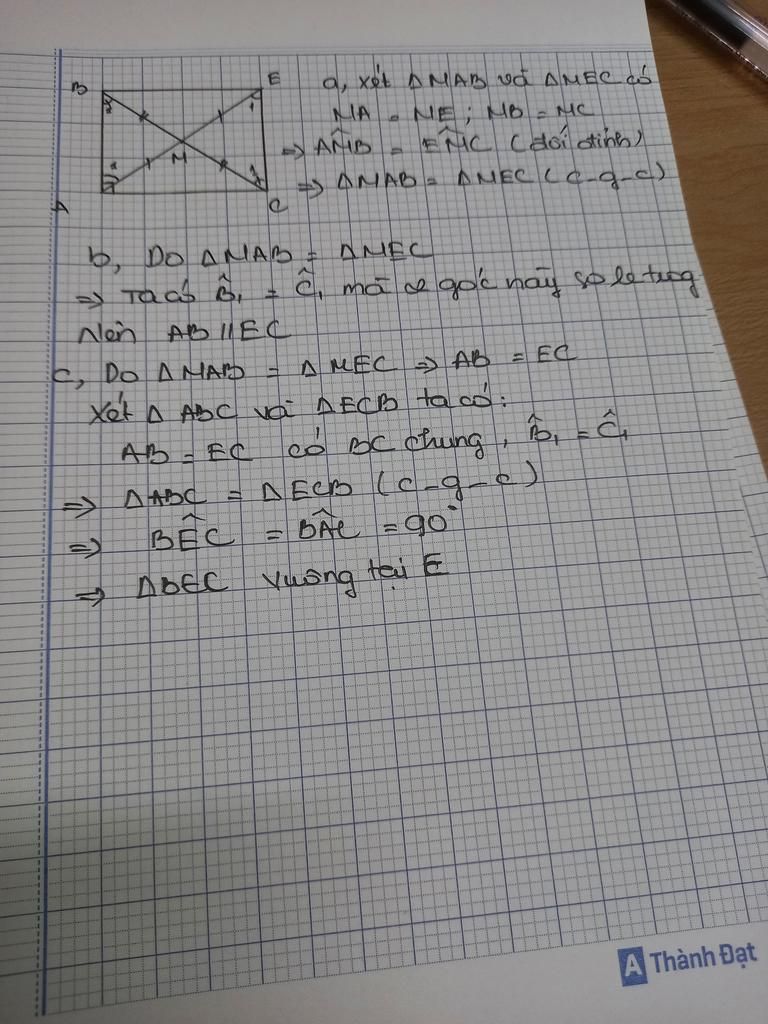 B
E
M
A
C
a, xét ΔMAB và ΔMEC có
MA = ME ; MB = MC
⇒ AM̂B = EM̂C (đối đỉnh)
⇒ ΔMAB = ΔMEC (c-g-c)
b, Do ΔMAB = ΔMEC
⇒ Ta có B̂₁ = Ĉ₁ mà góc này so le trong
Nên AB // EC
c, Do ΔMAB = ΔMEC ⇒ AB = EC
Xét ΔABC và ΔECB ta có:
AB = EC có BC chung, B̂₁ = Ĉ₁
⇒ ΔABC = ΔECB (c-g-c)
⇒ BÊC = BÂC = 90°
⇒ ΔBEC vuông tại E
A Thành Đạt